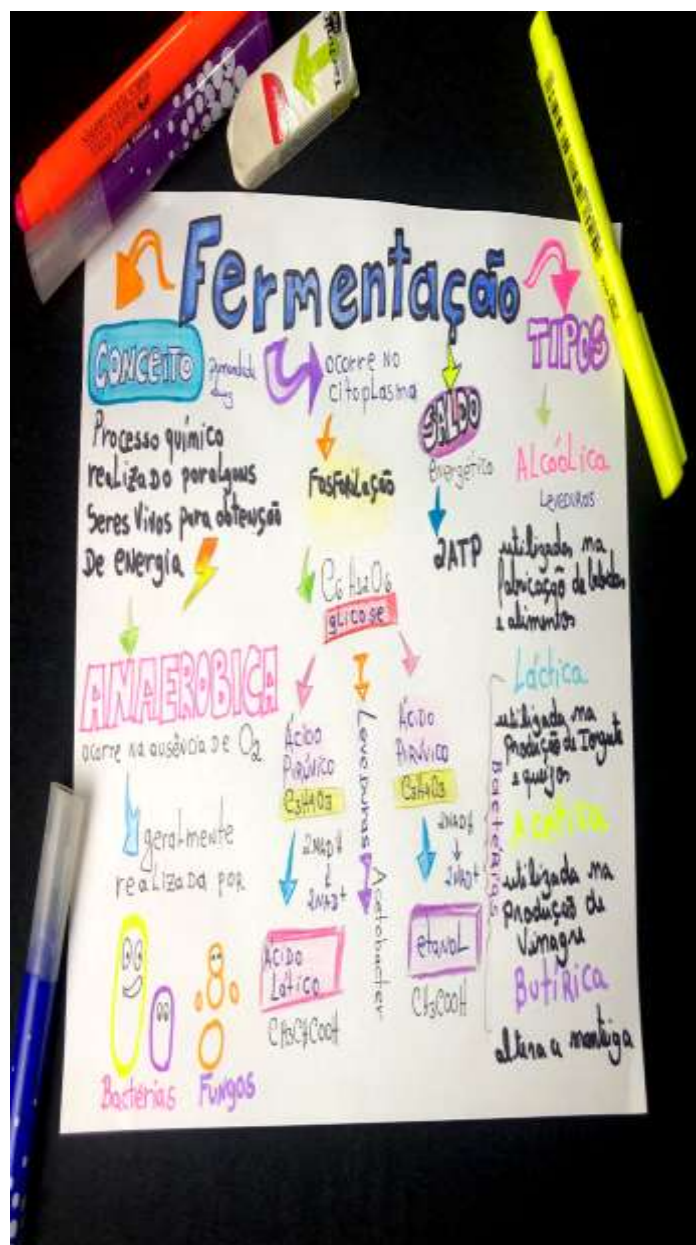 Fermentação
CONCEITO
Processo químico
realizado por alguns
Seres Vivos para obtenção
De energia
ANAERÓBICA
ocorre na ausência de O2
geralmente
realizada por
Bactérias
Fungos
ocorre no
citoplasma
Fosforilação
C6H12O6
glicose
Ácido
Pirúvico
C3H4O3
2NAD+
Ácido
Lático
Leveduras
Acetobacter
Ácido
Pirúvico
C3H4O3
2NAD+
etanol
CH3COOH
SALDO
energético
2ATP
TIPOS
Alcoólica
Leveduras
utilizadas na
fabricação de bebidas
e alimentos
Láctica
utilizada na
Produção de Iogurte
e queijos
Bactérias
Acética
utilizada na
Produção de
Vinagre
Butírica
altera a manteiga